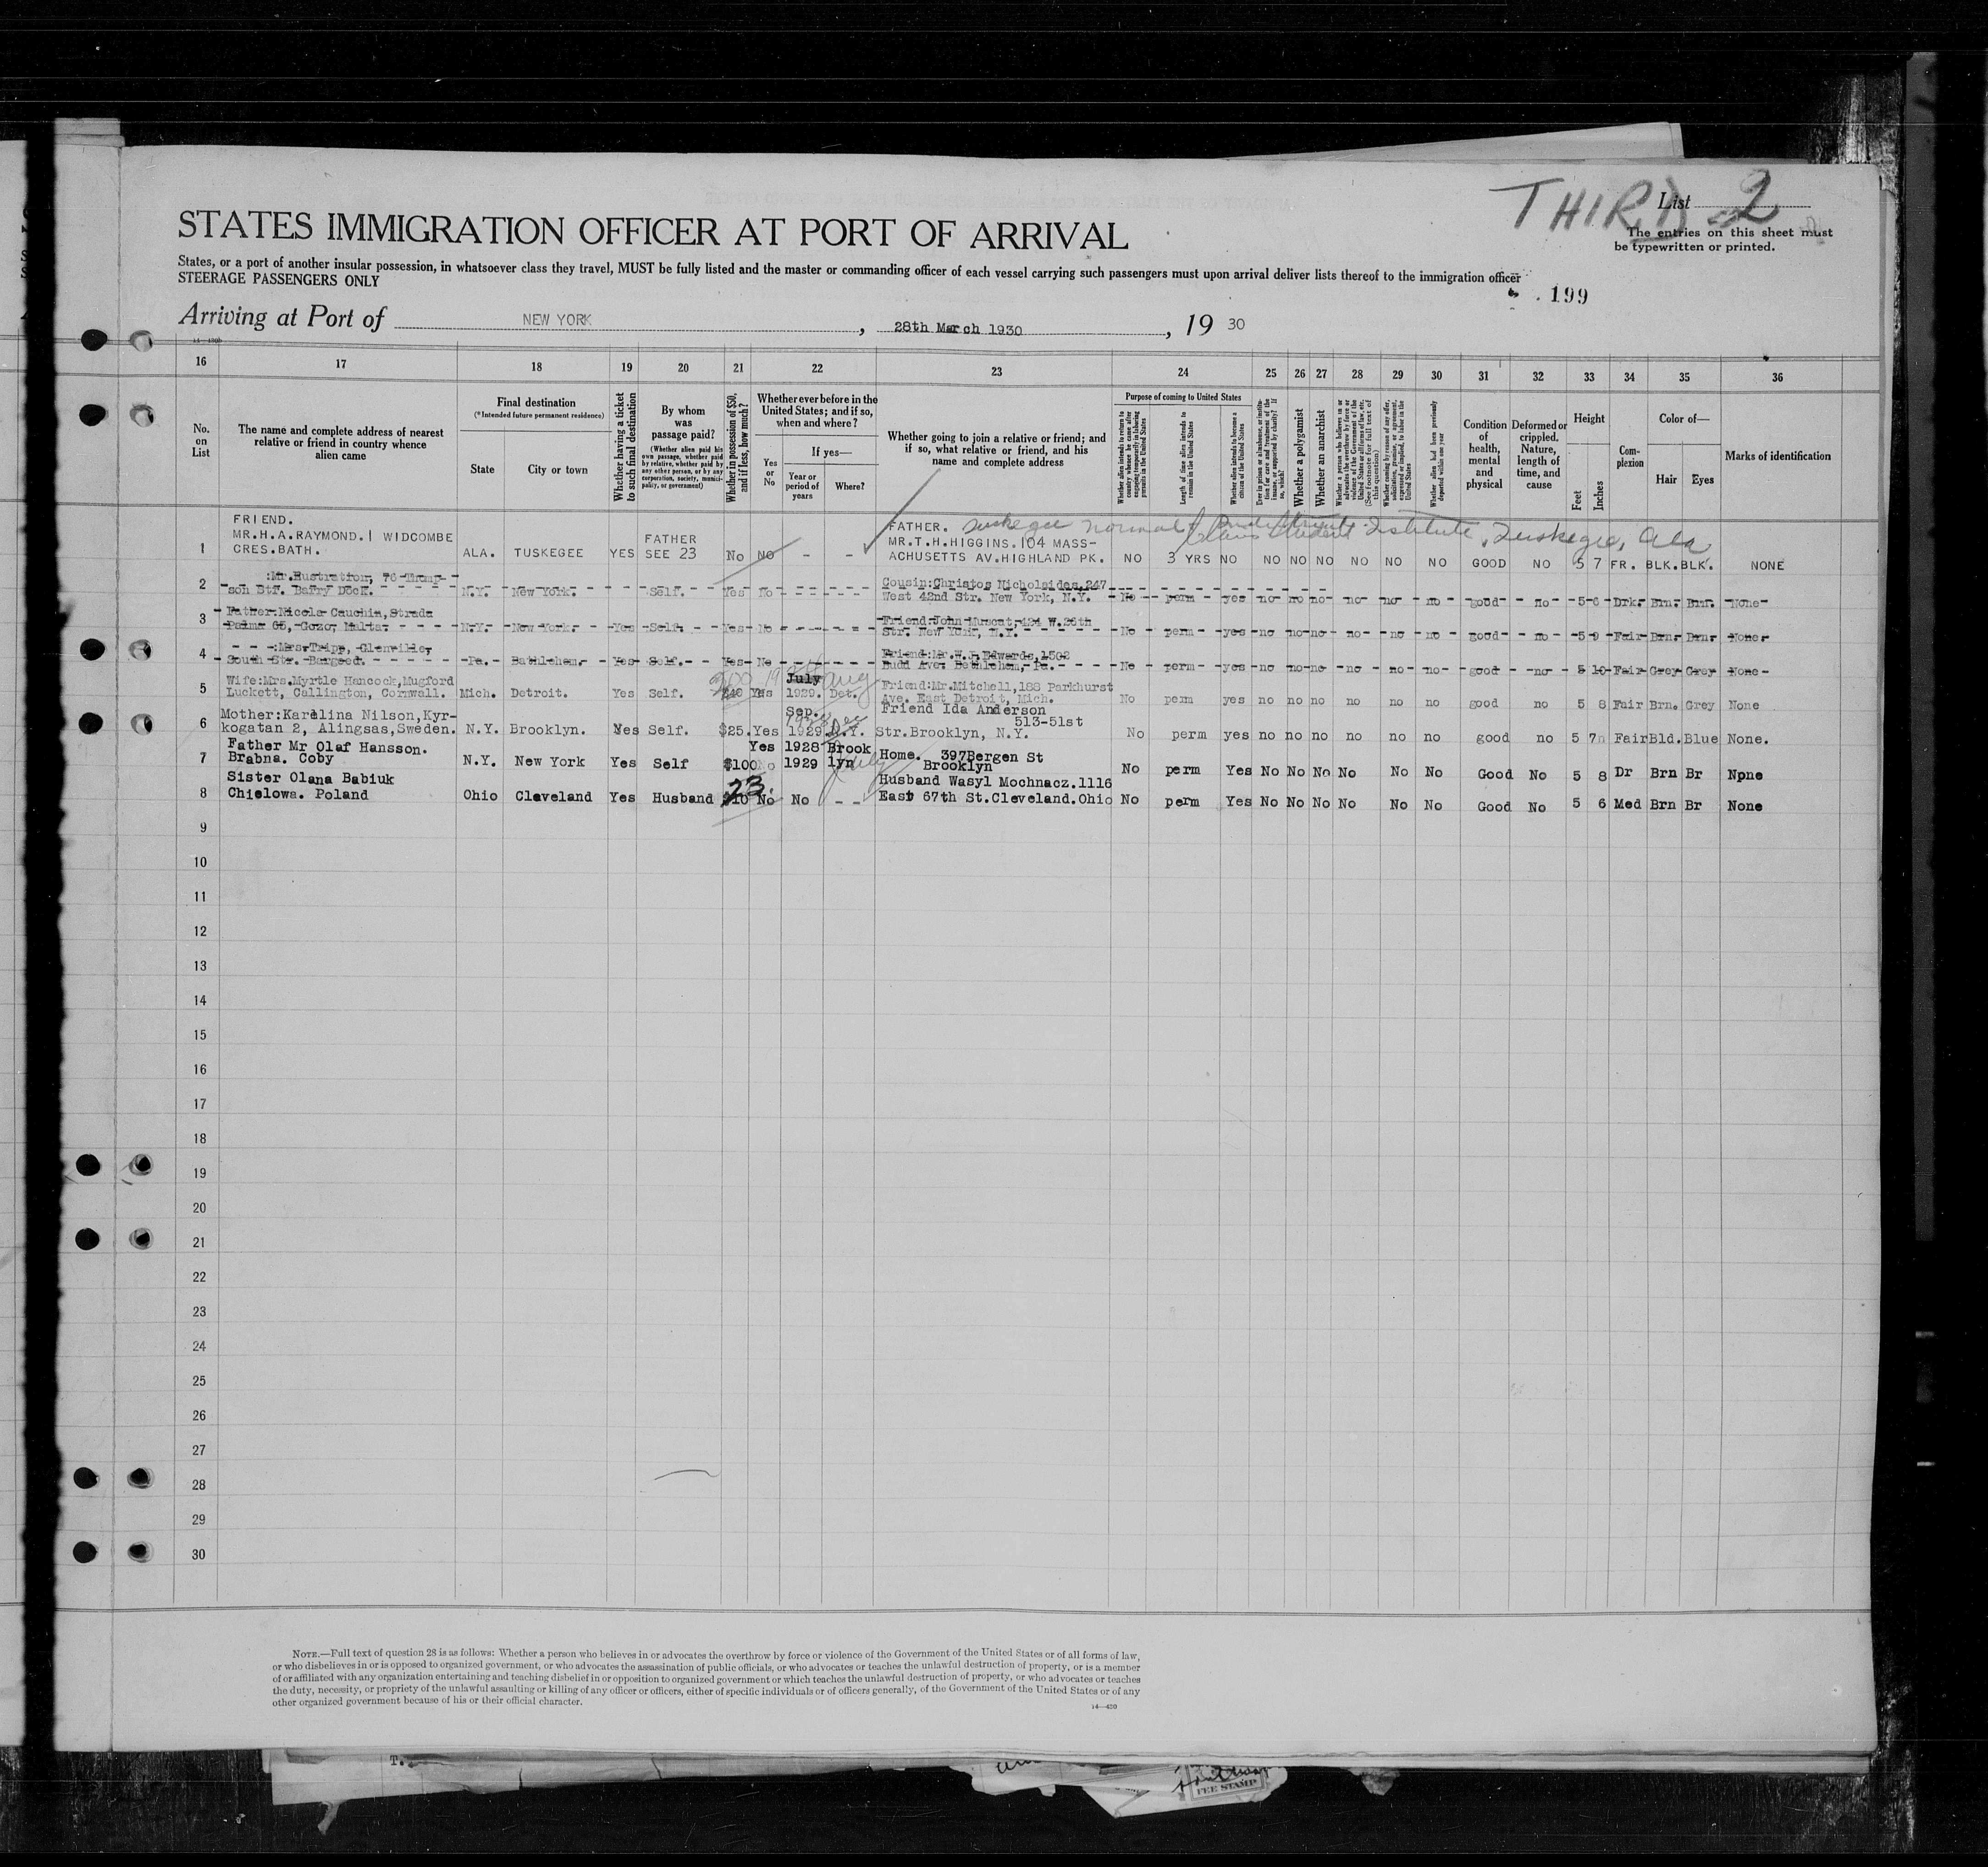 THIRD
List 2
STATES IMMIGRATION OFFICER AT PORT OF ARRIVAL
The entries on this sheet must
be typewritten or printed.
States, or a port of another insular possession, in whatsoever class they travel, MUST be fully listed and the master or commanding officer of each vessel carrying such passengers must upon arrival deliver lists thereof to the immigration officer
STEERAGE PASSENGERS ONLY
199
Arriving at Port of NEW YORK, 28th March 1930, 19 30
16 17 18 19 20 21 22 23 24 25 26 27 28 29 30 31 32 33 34 35 36
No. on List
The name and complete address of nearest relative or friend in country whence alien came
Final destination
(*Intended future permanent residence)
State
City or town
Whether having a ticket to such final destination
By whom was passage paid?
(Whether alien paid his own passage, whether paid by relative, whether paid by any other person, or by any corporation, society, municipality, or government)
Whether in possession of $50, and if less, how much?
Whether ever before in the United States; and if so, when and where?
Yes or No
If yes—
Year or period of years
Where?
Whether going to join a relative or friend; and if so, what relative or friend, and his name and complete address
Purpose of coming to United States
Whether alien intends to return to country whence he came after engaging temporarily in laboring pursuits in the United States
Length of time alien intends to remain in the United States
Whether alien intends to become a citizen of the United States
Ever in prison or almshouse, or institution for care and treatment of the insane, or supported by charity? If so, which?
Whether a polygamist
Whether an anarchist
Whether a person who believes in or advocates the overthrow by force or violence of the Government of the United States or all forms of law, etc. (See footnote for full text of this question)
Whether coming by reason of any offer, solicitation, promise, or agreement, expressed or implied, to labor in the United States
Whether alien had been previously deported within one year
Condition of health, mental and physical
Deformed or crippled. Nature, length of time, and cause
Height
Feet
Inches
Complexion
Color of—
Hair
Eyes
Marks of identification
1 FRIEND. MR.H.A.RAYMOND.1 WIDCOMBE CRES.BATH. ALA. TUSKEGEE YES FATHER SEE 23 No NO - - FATHER. MR.T.H.HIGGINS.104 MASSACHUSETTS AV.HIGHLAND PK. NO 3 YRS NO NO NO NO NO NO NO GOOD NO 5 7 FR. BLK. BLK. NONE
Tuskegee Normal & Institute, Tuskegee, Ala
2 :Mr.Eustration, 76 Thompson Str. Barry Dock. N.Y. New York. Self. Yes No Cousin:Christos Nicholaides,247 West 42nd Str. New York, N.Y. No perm yes no no no no no no good no 5 6 Drk. Brn. Brn. None
3 Father:Nicola Cauchia,Strada Palma 65, Gozo, Malta. N.Y. New York. Yes Self. Yes No Friend:John Muscat,424 W.26th Str. New York, N.Y. No perm yes no no no no no no good no 5 9 Fair Brn. Brn. None
4 :Mrs.Tripp, Glenville, South Str. Bargoed. Pa. Bethlehem. Yes Self. Yes No Friend:Mr.W.J.Edwards,1502 Budd Ave. Bethlehem, Pa. No perm yes no no no no no no good no 5 10 Fair Grey Grey None
5 Wife:Mrs.Myrtle Hancock,Mugford Luckett, Callington, Cornwall. Mich. Detroit. Yes Self. $40 Yes July 1929. Det. Friend:Mr.Mitchell,188 Parkhurst Ave. East Detroit, Mich. No perm yes no no no no no no good no 5 8 Fair Brn. Grey None
6 Mother:Karolina Nilson,Kyrkogatan 2, Alingsas,Sweden. N.Y. Brooklyn. Yes Self. $25. Yes Sep. 1929 N.Y. Friend Ida Anderson 513-51st Str.Brooklyn, N.Y. No perm yes no no no no no no good no 5 7 Fair Bld. Blue None.
7 Father Mr Olaf Hansson. Brabna. Coby N.Y. New York Yes Self $100 Yes 1928 1929 Brooklyn Home. 397Bergen St Brooklyn No perm Yes No No No No No No Good No 5 8 Dr Brn Br None
8 Sister Olana Babiuk Chielowa. Poland Ohio Cleveland Yes Husband $10 23. No No - - Husband Wasyl Mochnacz.1116 East 67th St.Cleveland.Ohio No perm Yes No No No No No No Good No 5 6 Med Brn Br None
9
10
11
12
13
14
15
16
17
18
19
20
21
22
23
24
25
26
27
28
29
30
NOTE.—Full text of question 28 is as follows: Whether a person who believes in or advocates the overthrow by force or violence of the Government of the United States or of all forms of law,
or who disbelieves in or is opposed to organized government, or who advocates the assassination of public officials, or who advocates or teaches the unlawful destruction of property, or is a member
of or affiliated with any organization entertaining and teaching disbelief in or opposition to organized government or which teaches the unlawful destruction of property, or who advocates or teaches
the duty, necessity, or propriety of the unlawful assaulting or killing of any officer or officers, either of specific individuals or of officers generally, of the Government of the United States or of any
other organized government because of his or their official character.
14—430
FEE STAMP